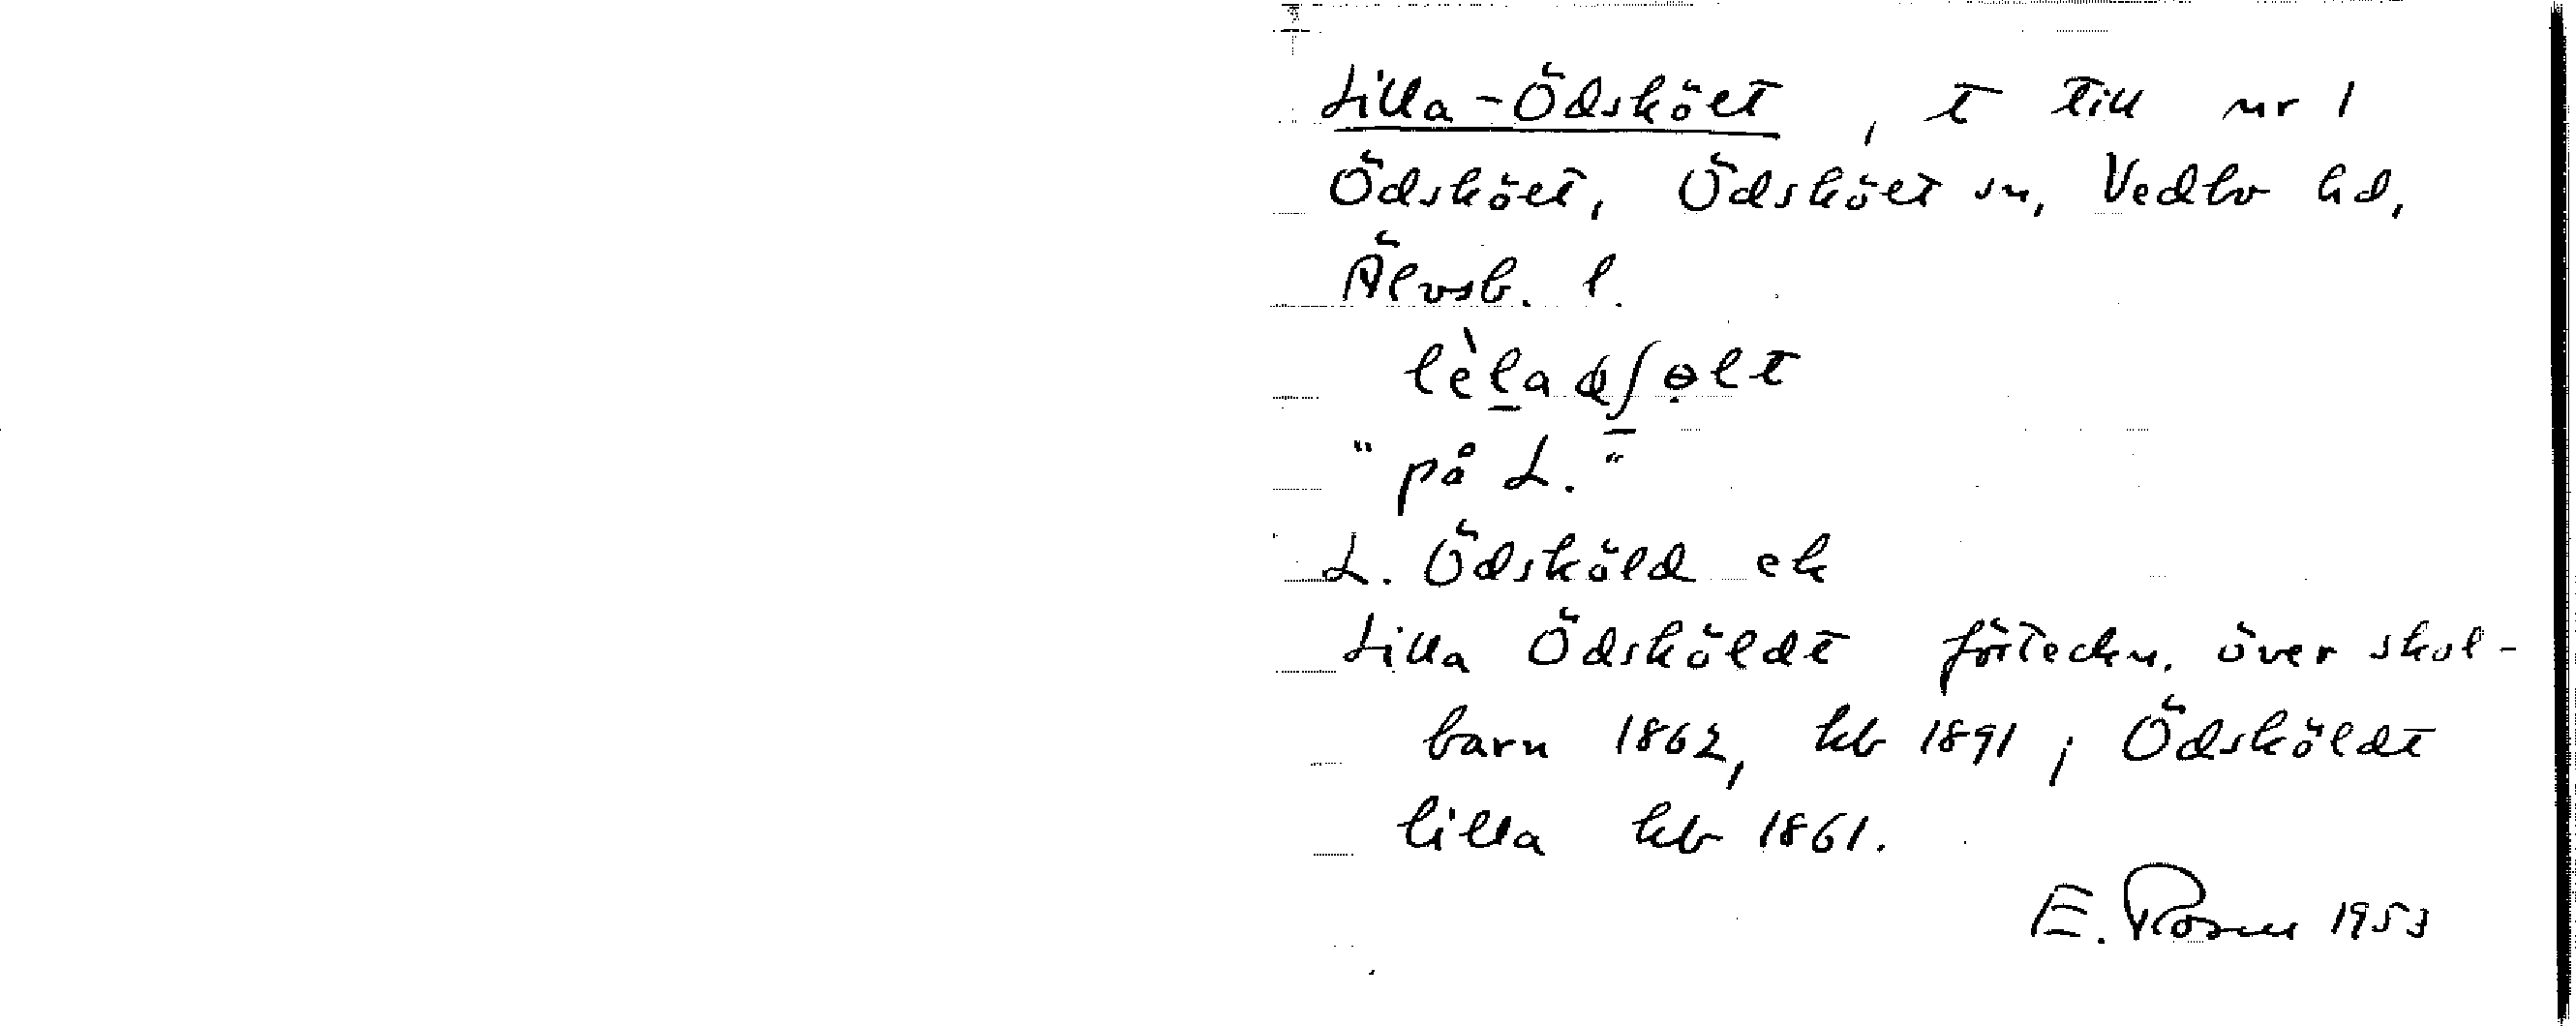 Lilla-Ödskölt, t till nr 1
Ödskölt, Ödskölt sn, Vedbo hd,
Älvsb. l.
"på L."
L. Ödsköld ek
Lilla Ödsköldt förteckn. över skol-
barn 1862, kb 1891; Ödsköldt
lilla kb 1861.
E. Rosen 1953